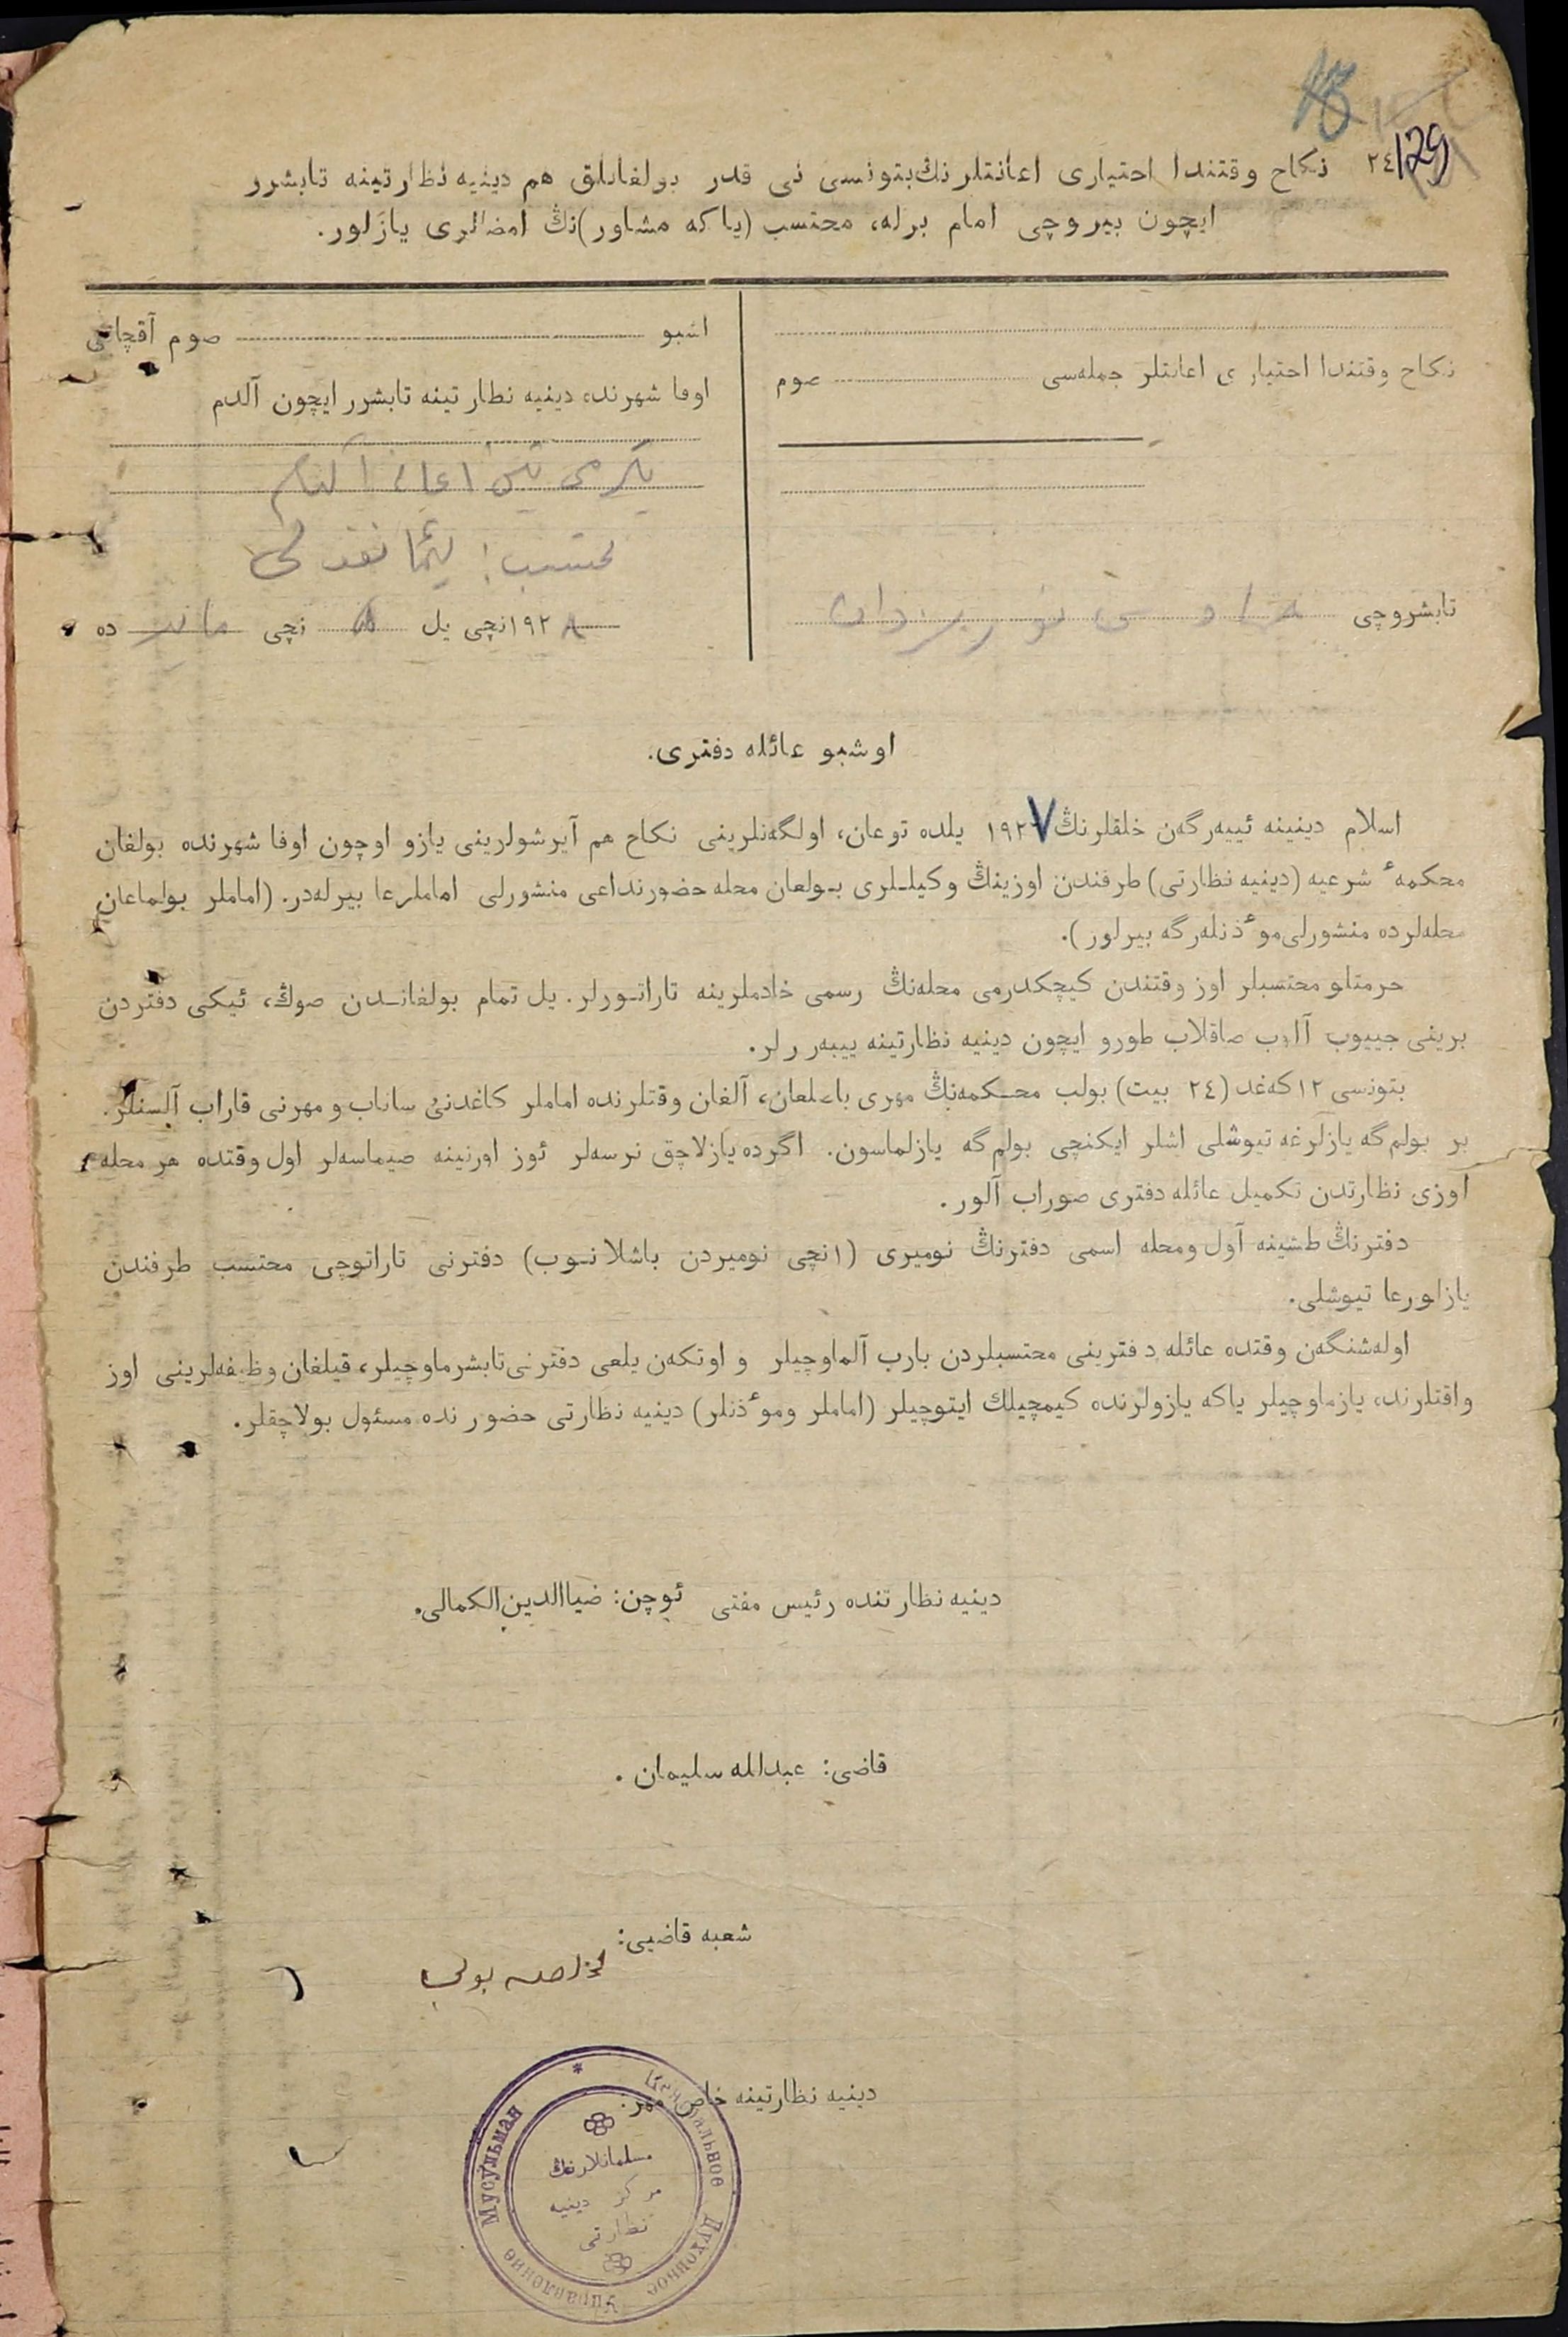 129
٢٤ نكاح وقتندا احتیاری اعانتلرنڭ بتونسی نی قدر بولغانلق هم دینیه نظارتینه تابشرر
ایچون بیروچی امام برله، محتسب (یا كه مشاور) نڭ امضالری یازلور.
نكاح وقتندا احتیاری اعانتلر جمله‌سی صوم
تابشروچی
اشبو صوم آقچانی
اوفا شهرنده دینیه نظارتینه تابشرر ایچون آلدم
یگرمی تین اعانه آلندم
محتسب:
١٩٢٨ نچی یل نچی ده
اوشبو عائله دفتری.
اسلام دینینه ئییه‌رگه‌ن خلقلرنڭ ١٩٢٧ یلده توعان، اولگه‌نلرینی نكاح هم آیرشولرینی یازو اوچون اوفا شهرنده بولغان
محكمهٔ شرعیه (دینیه نظارتی) طرفندن اوزینڭ وكیللری بولعان محله حضورنداعی منشورلی اماملرعا بیرله‌در. (اماملر بولماعان
محله‌لرده منشورلی موٴذنله‌رگه بیرلور).
حرمتلو محتسبلر اوز وقتندن كیچكدرمی محله‌نڭ رسمی خادملرینه تاراتورلر. یل تمام بولغاندن صوڭ، ئیكی دفتردن
برینی جییوب آلوب صاقلاب طورو ایچون دینیه نظارتینه ییبه‌ررلر.
بتونسی ١٢ كه‌غد (٢٤ بیت) بولب محكمه‌نڭ مهری باصلعان، آلغان وقتلرنده اماملر كاغدنی ساناب و مهرنی قاراب آلسنلر.
بر بولم گه یازلرغه تیوشلی اشلر ایكنچی بولم گه یازلماسون. اگرده یازلاچق نرسه‌لر ئوز اورنینه صیماسه‌لر اول وقتده هر محله
اوزی نظارتدن تكمیل عائله دفتری صوراب آلور.
دفترنڭ طشینه آول و محله اسمی دفترنڭ نومیری (١ نچی نومیردن باشلانوب) دفترنی تاراتوچی محتسب طرفندن
یازلورعا تیوشلی.
اوله‌شنگه‌ن وقتده عائله دفترینی محتسبلردن بارب آلماوچیلر و اوتكه‌ن یلعی دفترنی تابشرماوچیلر، قیلغان وظیفه‌لرینی اوز
واقتلرنده یازماوچیلر یاكه یازولرنده كیمچیلك ایتوچیلر (اماملر وموٴذنلر) دینیه نظارتی حضورنده مسئول بولاچقلر.
دینیه نظارتنده رئیس مفتی ئوچن: ضیاالدین الكمالی.
قاضی: عبدالله سلیمان.
شعبه قاضیی:
دینیه نظارتینه خاص مهر:
Центральное Духовное Управление Мусульман
مسلمانلارنڭ
مركز دینیه
نظارتی